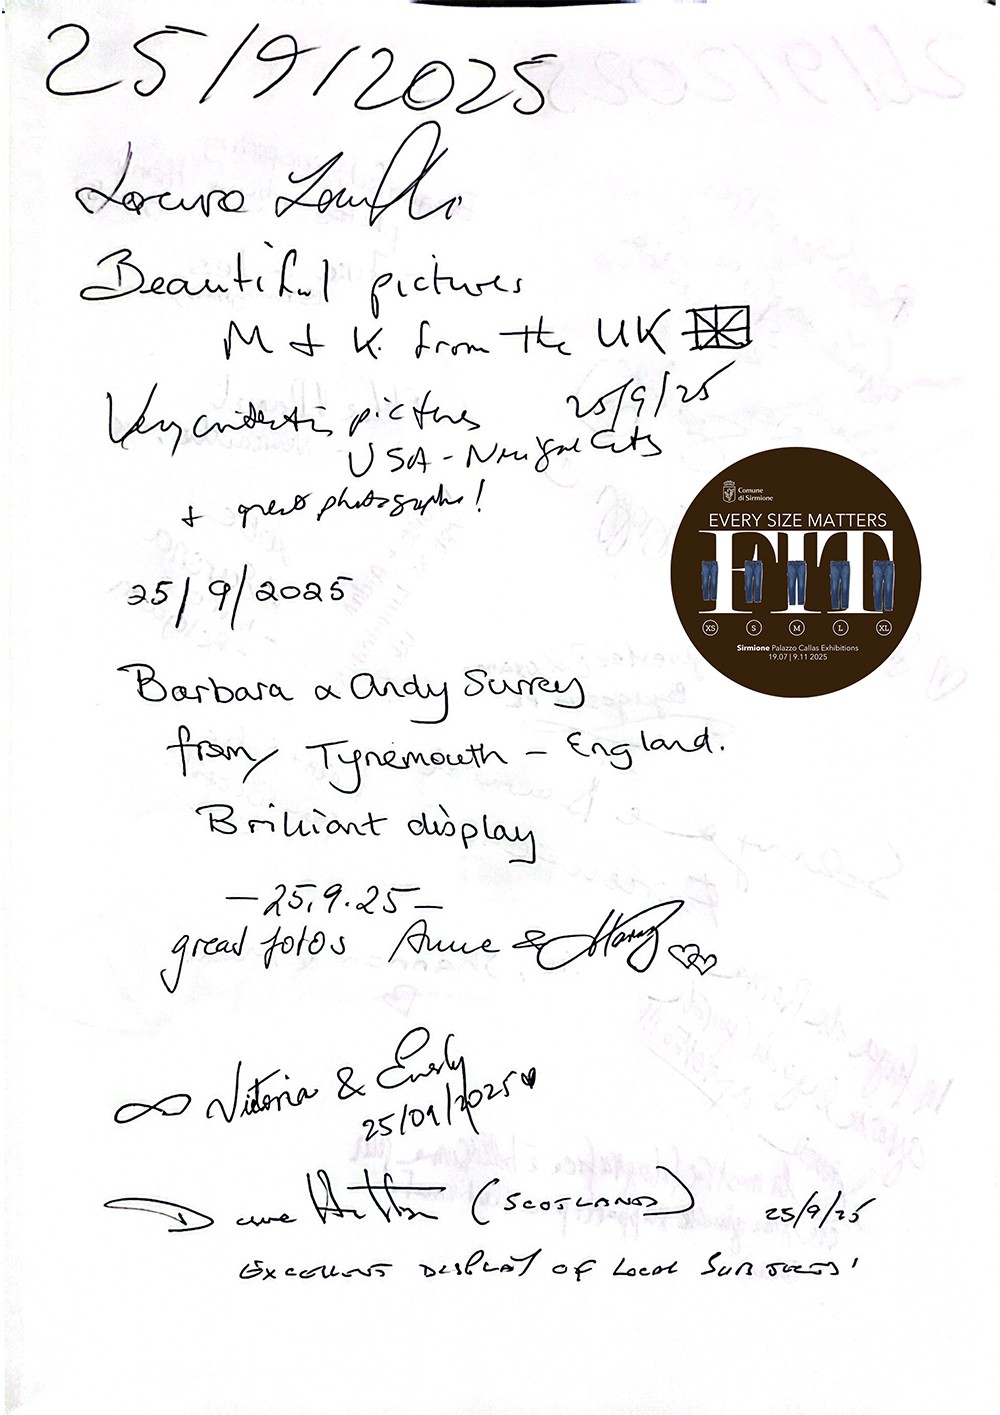 25/9/2025
Beautiful pictures
M & K. from the UK
25/9/25
Very pictures
USA - New York City
+ great photographs!
Comune
di Sirmione
EVERY SIZE MATTERS
FIT
XS S M L XL
Sirmione Palazzo Callas Exhibitions
19.07 | 9.11 2025
25/9/2025
Barbara & Andy Surrey
from Tynemouth - England.
Brilliant display
- 25.9.25 -
great fotos Anne &
Vittoria &
25/09/2025
Dave Hutton (SCOTLAND) 25/9/25
EXCELLENT DISPLAY OF LOCAL SUBJECTS!